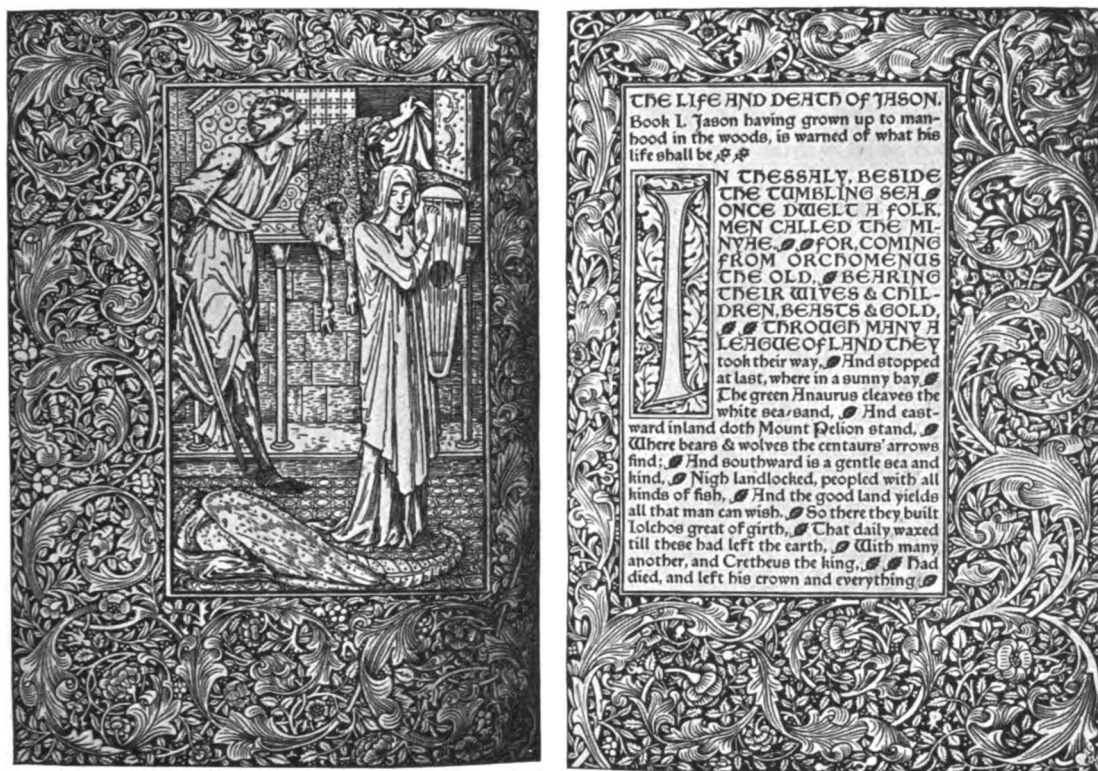 THE LIFE AND DEATH OF JASON.
Book I. Jason having grown up to man-
hood in the woods, is warned of what his
life shall be
IN THESSALY, BESIDE
THE TUMBLING SEA
ONCE DWELT A FOLK,
MEN CALLED THE MI-
NYAE. FOR, COMING
FROM ORCHOMENUS
THE OLD, BEARING
THEIR WIVES & CHIL-
DREN, BEASTS & GOLD,
THROUGH MANY A
LEAGUE OF LAND THEY
took their way, And stopped
at last, where in a sunny bay,
The green Anaurus cleaves the
white sea-sand, And east-
ward inland doth Mount Pelion stand,
Where bears & wolves the centaurs' arrows
find; And southward is a gentle sea and
kind, Nigh landlocked, peopled with all
kinds of fish, And the good land yields
all that man can wish. So there they built
Iolchos great of girth, That daily waxed
till these had left the earth, With many
another, and Cretheus the king, Had
died, and left his crown and everything